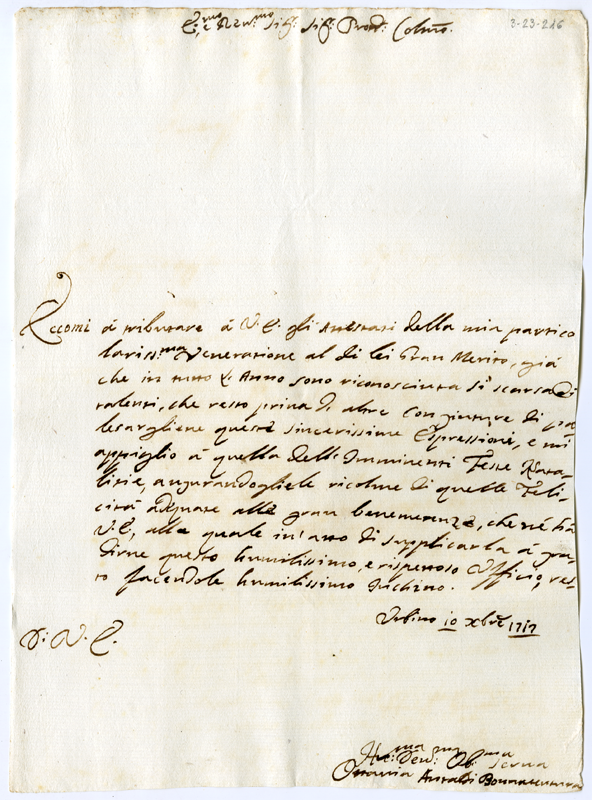 E.mo e Rev.mo Sig.r Sig.r Pron. Colmo.
3-23-216
Eccomi á tributare á V. E. gli Attestati della mia partico
larissma Venerazione al di lei Gran Merito, giá
che in tutto L'Anno sono riconosciuta sí scarsa di
talenti, che resto priva di altre congiunture di pa
lesargliene queste sincerissime Espressioni, e mi
appiglio á quella delle Imminenti Feste Nata-
litie, augurandogliele ricolme di quelle Feli-
citá adequate alle gran benemerenze, che ne há
V. E., alla quale in atto di supplicarla á gra-
dirne questo humilissimo, e rispettoso Offitio, res-
to facendole humilissimo Inchino.
Urbino 10 xbre 1717
D. V. E.
Hu:ma Dev:ma Ob:ma Serva
Ottavia Antaldi Bonaventura